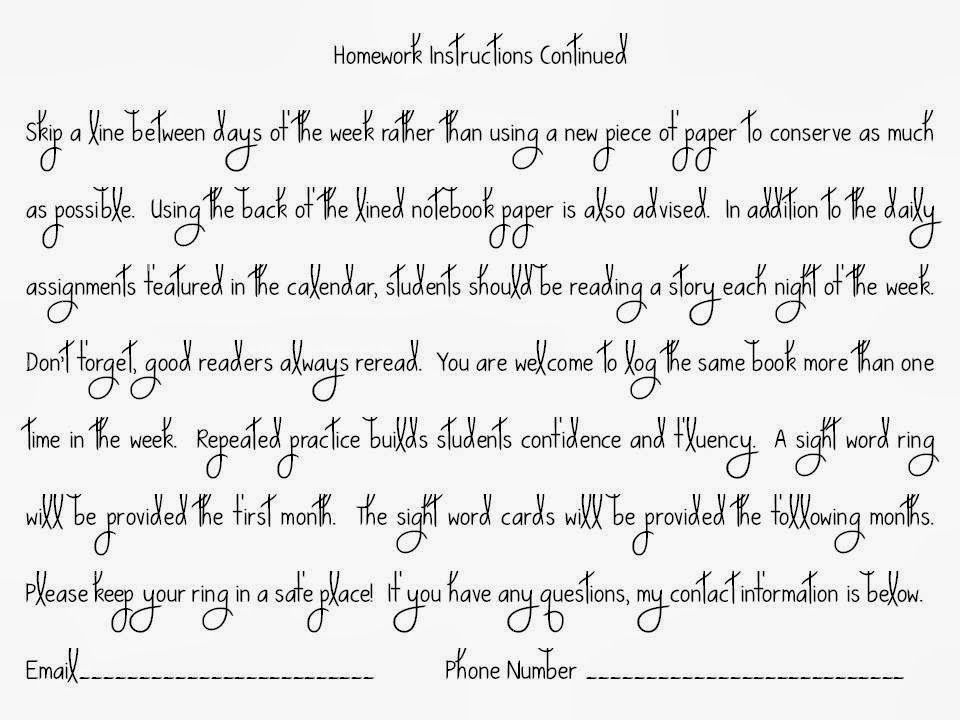 Homework Instructions Continued
Skip a line between days of the week rather than using a new piece of paper to conserve as much
as possible. Using the back of the lined notebook paper is also advised. In addition to the daily
assignments featured in the calendar, students should be reading a story each night of the week.
Don't forget, good readers always reread. You are welcome to log the same book more than one
time in the week. Repeated practice builds students confidence and fluency. A sight word ring
will be provided the first month. The sight word cards will be provided the following months.
Please keep your ring in a safe place! If you have any questions, my contact information is below.
Email_________________________ Phone Number ___________________________